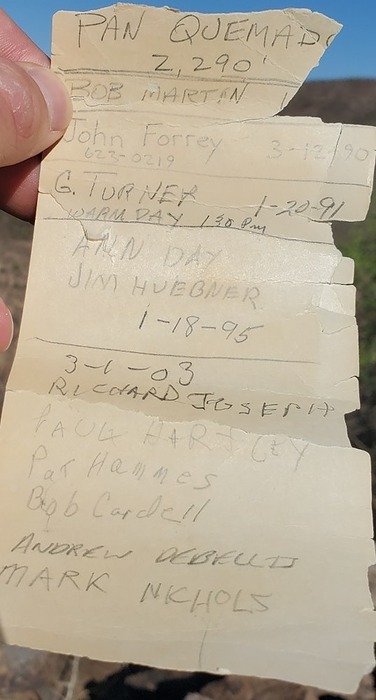 PAN QUEMADO
2,290'
BOB MARTIN
John Forrey 3-12-90
623-0219
G. TURNER 1-20-91
WARM DAY 1:30 PM
ANN DAY
JIM HUEBNER
1-18-95
3-1-03
RICHARD JOSEPH
PAUL HARTLEY
Pat Hammes
Bob Cardell
ANDREW DEBELLIS
MARK NICHOLS